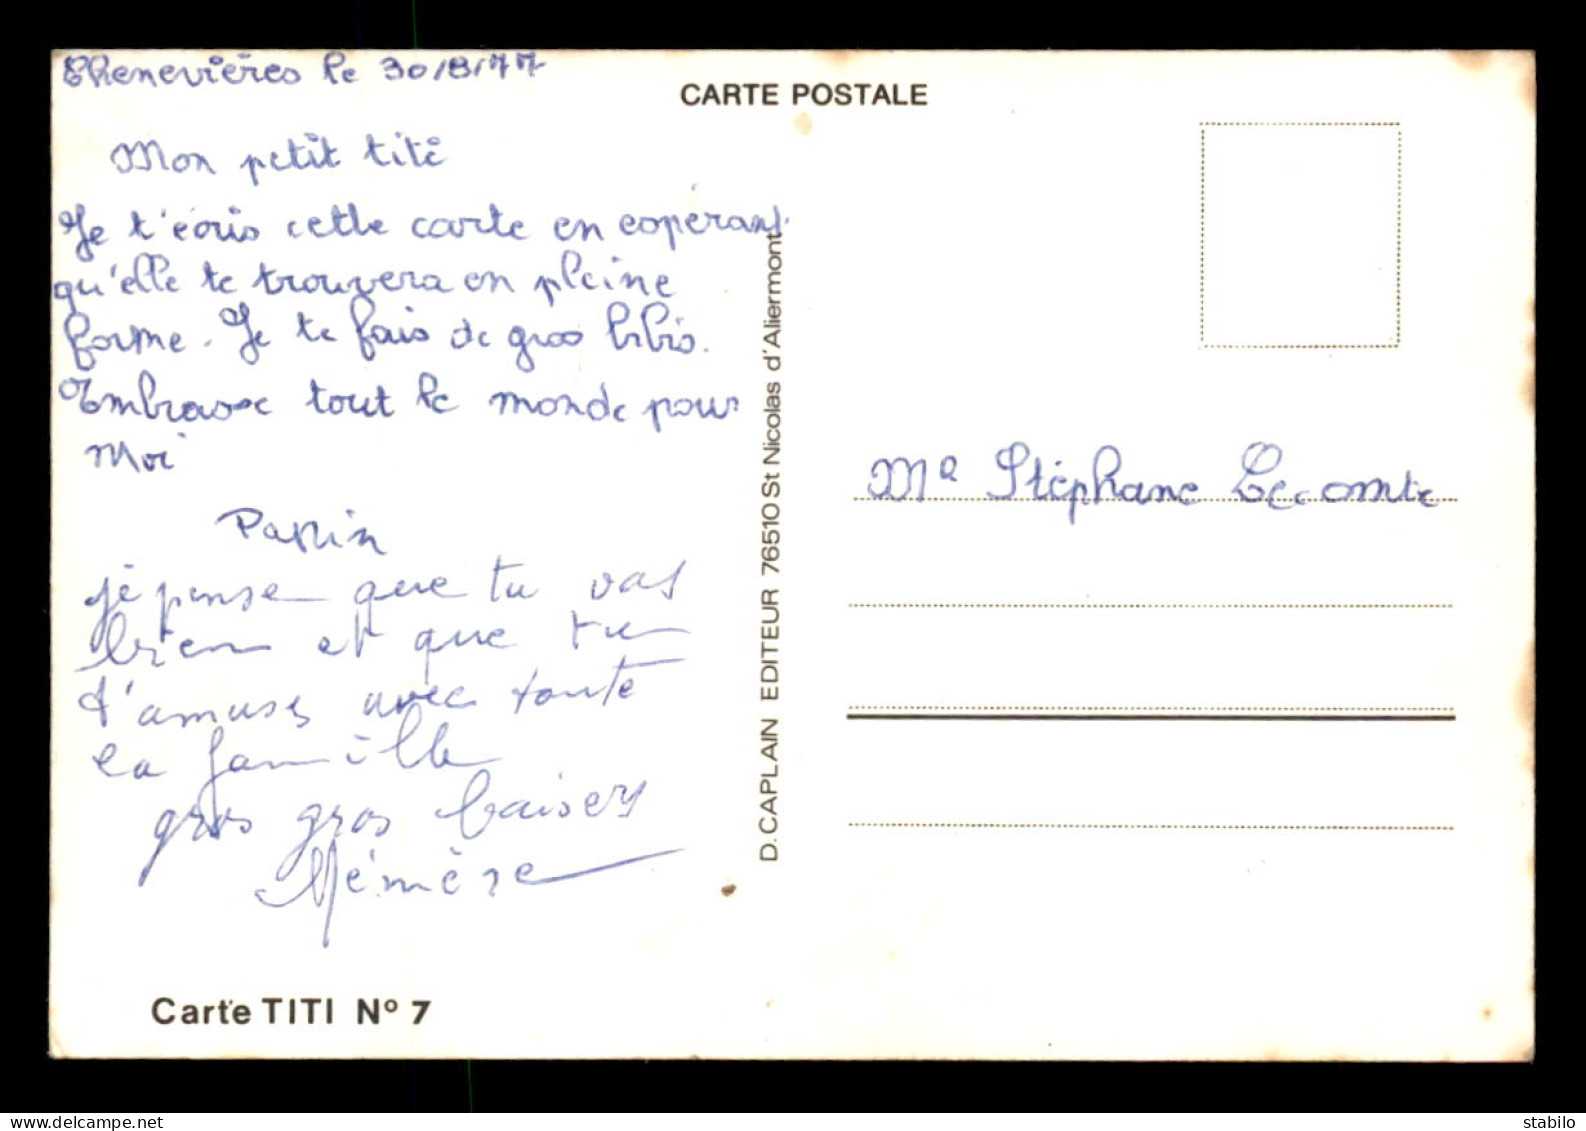 Chenevières le 30/8/77
Mon petit titi
Je t'écris cette carte en espérant
qu'elle te trouvera en pleine
forme. Je te fais de gros bibis.
Embrasse tout le monde pour
moi
je pense que tu vas
bien et que tu
t'amuses avec toute
la famille
gros gros baisers
Mémère
Carte TITI Nº 7
D. CAPLAIN EDITEUR 76510 St Nicolas d'Aliermont
CARTE POSTALE
Stéphane Lecomte
delcampe.net
stabilo